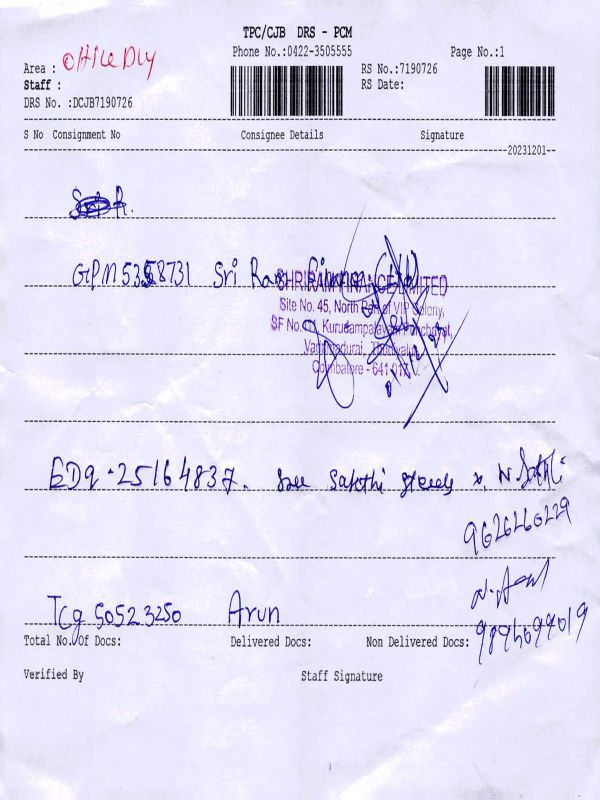 TPC/CJB DRS - PCM
Phone No.:0422-3505555 Page No.:1
Area : Office Dly
RS No.:7190726
Staff :
RS Date:
DRS No. :DCJB7190726
S No Consignment No Consignee Details Signature
20231201
GPM5358731 Sri Ram Finance
SHRIRAM FINANCE LIMITED
Site No. 45, North Part of VIP Colony,
SF No. Kurudampalayam Panchayat,
Coimbatore - 641
EDq 25164837. Sree Sakthi steels N. Sakthi
9626260229
Tcg 50523250 Arun
Total No.Of Docs: Delivered Docs: Non Delivered Docs:
Verified By Staff Signature